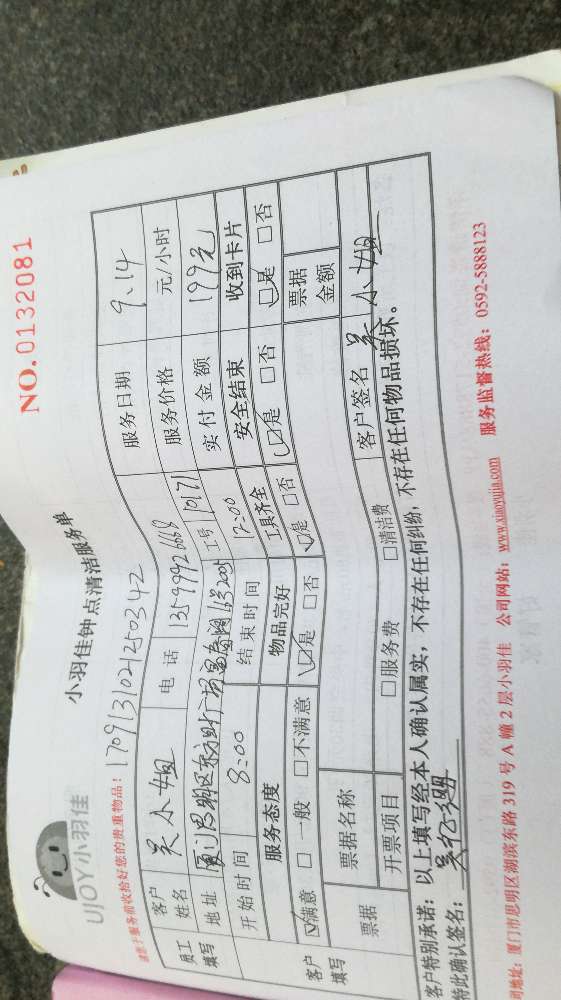 UJOY小羽佳
小羽佳钟点清洁服务单
NO.0132081
请您于服务前收拾好您的贵重物品！ 1709131021250342
员工填写
客户姓名 吴小姐 电话 13599926668 服务日期 9.14
地址 工号 服务价格 元/小时
开始时间 8:00 结束时间 12:00 实付金额 199元
客户填写
服务态度 物品完好 工具齐全 安全结束 收到卡片
☑满意 □一般 □不满意 ☑是 □否 ☑是 □否 ☑是 □否 ☑是 □否
票据 票据名称 票据金额
开票项目 □服务费 □清洁费 客户签名 吴小姐
客户特别承诺：以上填写经本人确认属实，不存在任何纠纷，不存在任何物品损坏。
特此确认签名：
司地址：厦门市思明区湖滨东路319号A幢2层小羽佳 公司网站：www.xiaoyujia.com 服务监督热线：0592-5888123